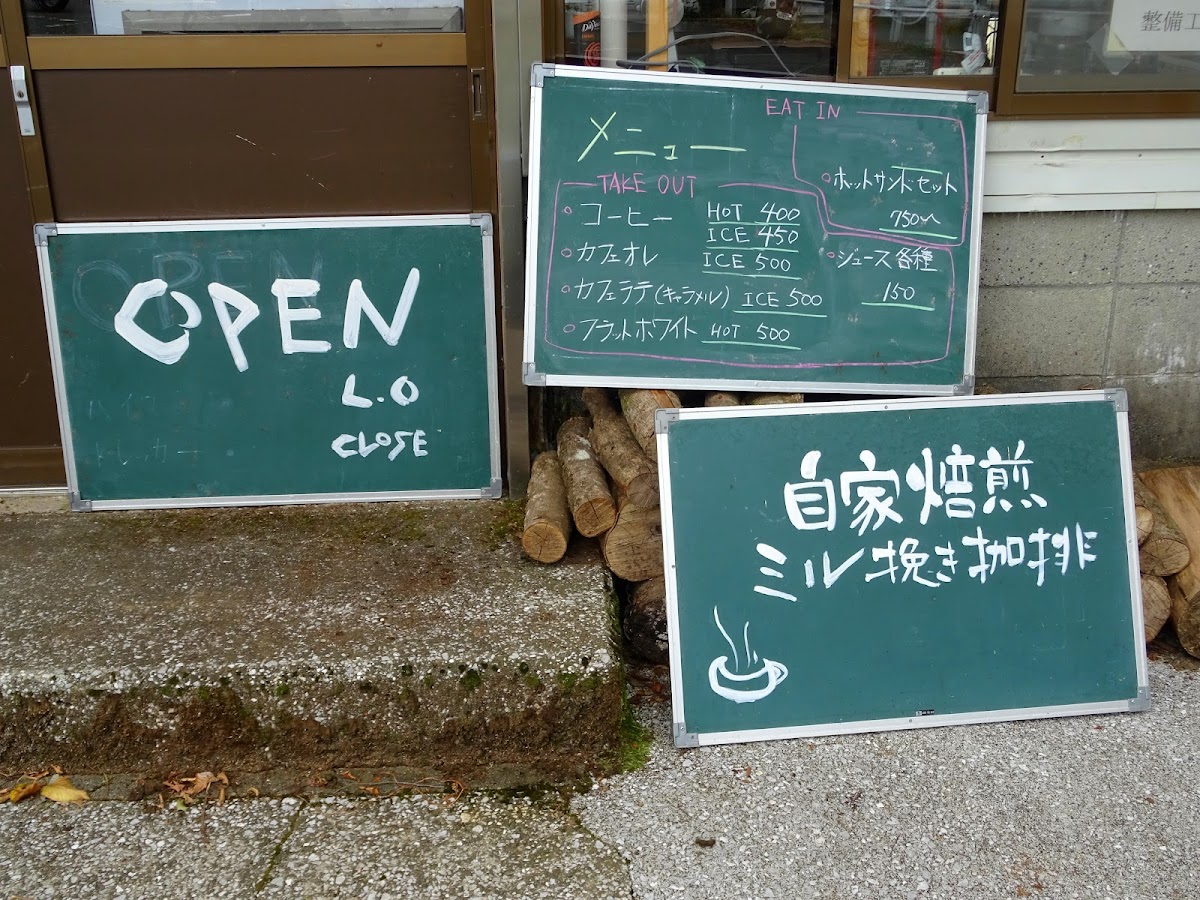 OPEN
L.O
CLOSE
メニュー
EAT IN
ホットサンドセット
750～
TAKE OUT
コーヒー HOT 400
ICE 450
カフェオレ ICE 500
カフェラテ(キャラメル) ICE 500
フラットホワイト HOT 500
ジュース各種
150
自家焙煎
ミル挽き珈排
整備工